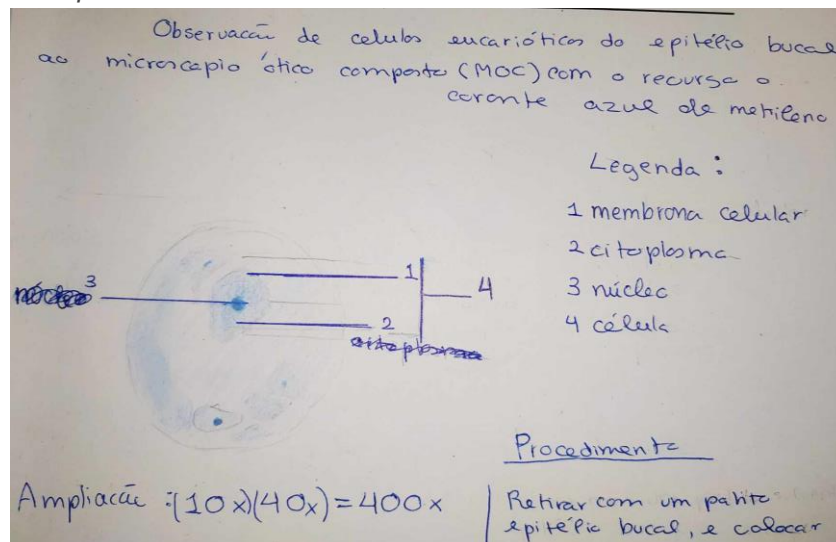 Observação de celulas eucarióticas do epitélio bucal
ao microscopio ótico composto (MOC) com o recurso o
corante azul de metileno
Legenda :
1 membrana celular
2 citoplasma
3 núcleo
4 célula
3
1
4
2
citoplasma
Procedimento
Ampliação :(10x)(40x)=400x
Retirar com um palito
epitélio bucal, e colocar